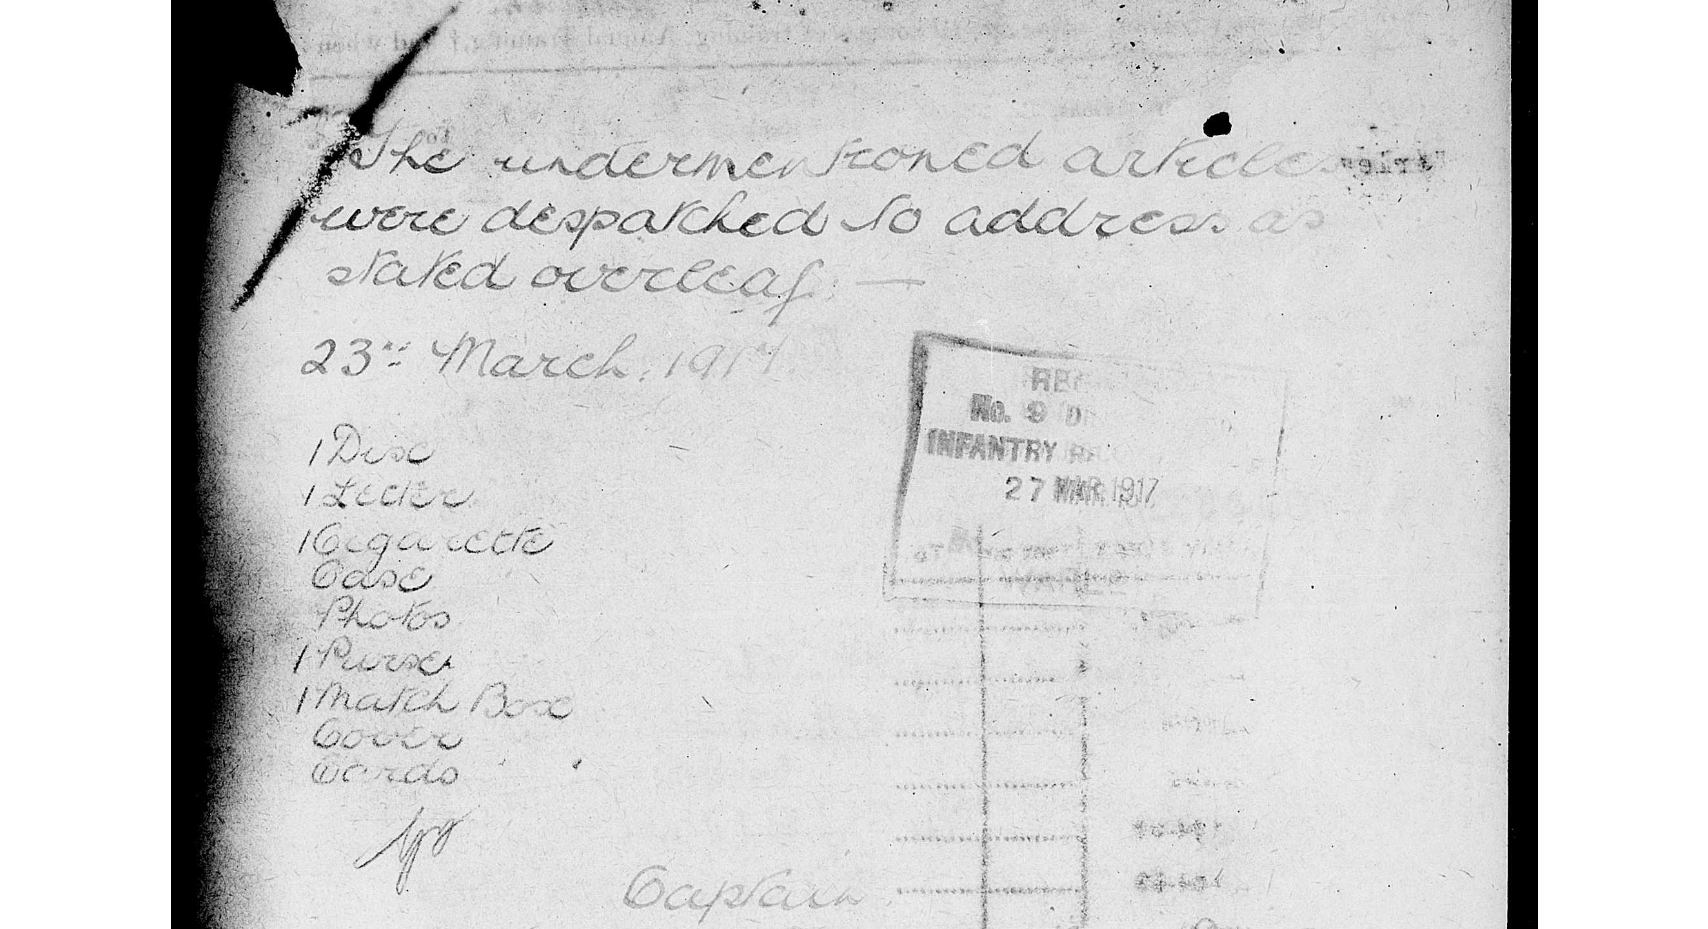 The undermentioned articles
were despatched to address as
stated overleaf. —
23rd March. 1917.
REC
No. 9 D
INFANTRY REC
27 MAR 1917
1 Disc
1 Letter
1 Cigarette
Case
Photos
1 Purse
1 Match Box
Cover
Cards
Captain